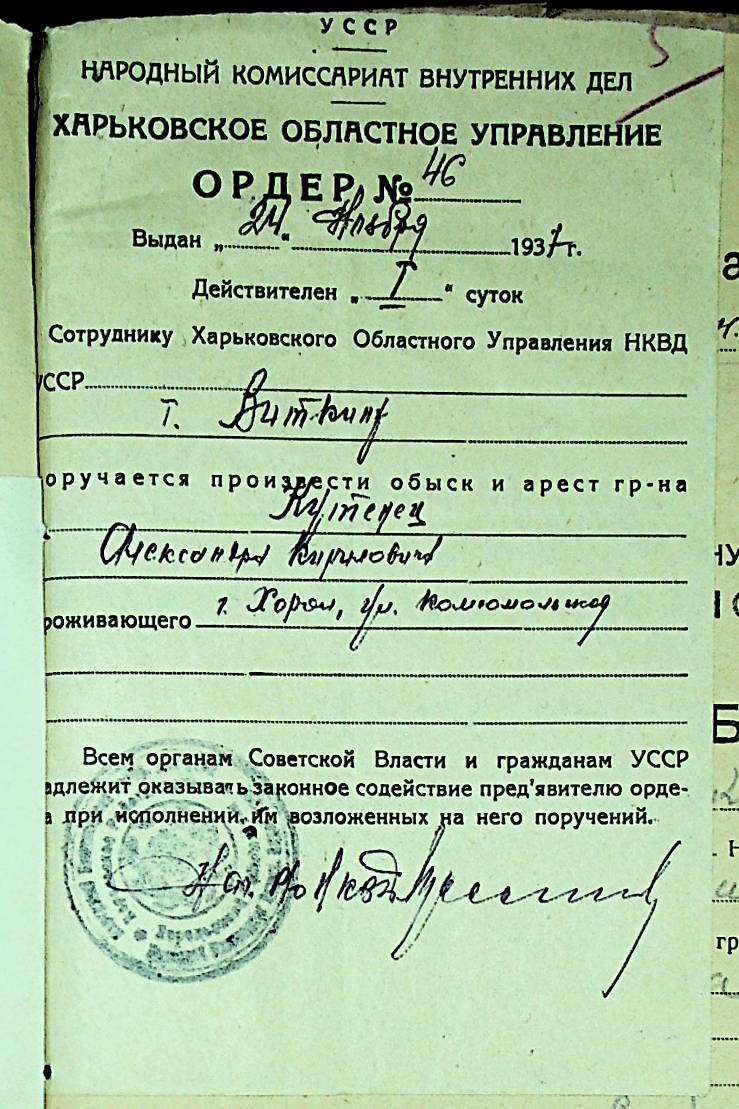 УССР
НАРОДНЫЙ КОМИССАРИАТ ВНУТРЕННИХ ДЕЛ
ХАРЬКОВСКОЕ ОБЛАСТНОЕ УПРАВЛЕНИЕ
5
ОРДЕР № 46
Выдан „24“ Ноября 1937 г.
Действителен „I“ суток
Сотруднику Харьковского Областного Управления НКВД
УССР
т. Виткину
оручается произвести обыск и арест гр-на
Кутепец
Александра Кириловича
роживающего г. Хорол, ул. Комсомольская
Всем органам Советской Власти и гражданам УССР
адлежит оказывать законное содействие пред'явителю орде-
а при исполнении им возложенных на него поручений.
Нач. РО НКВД